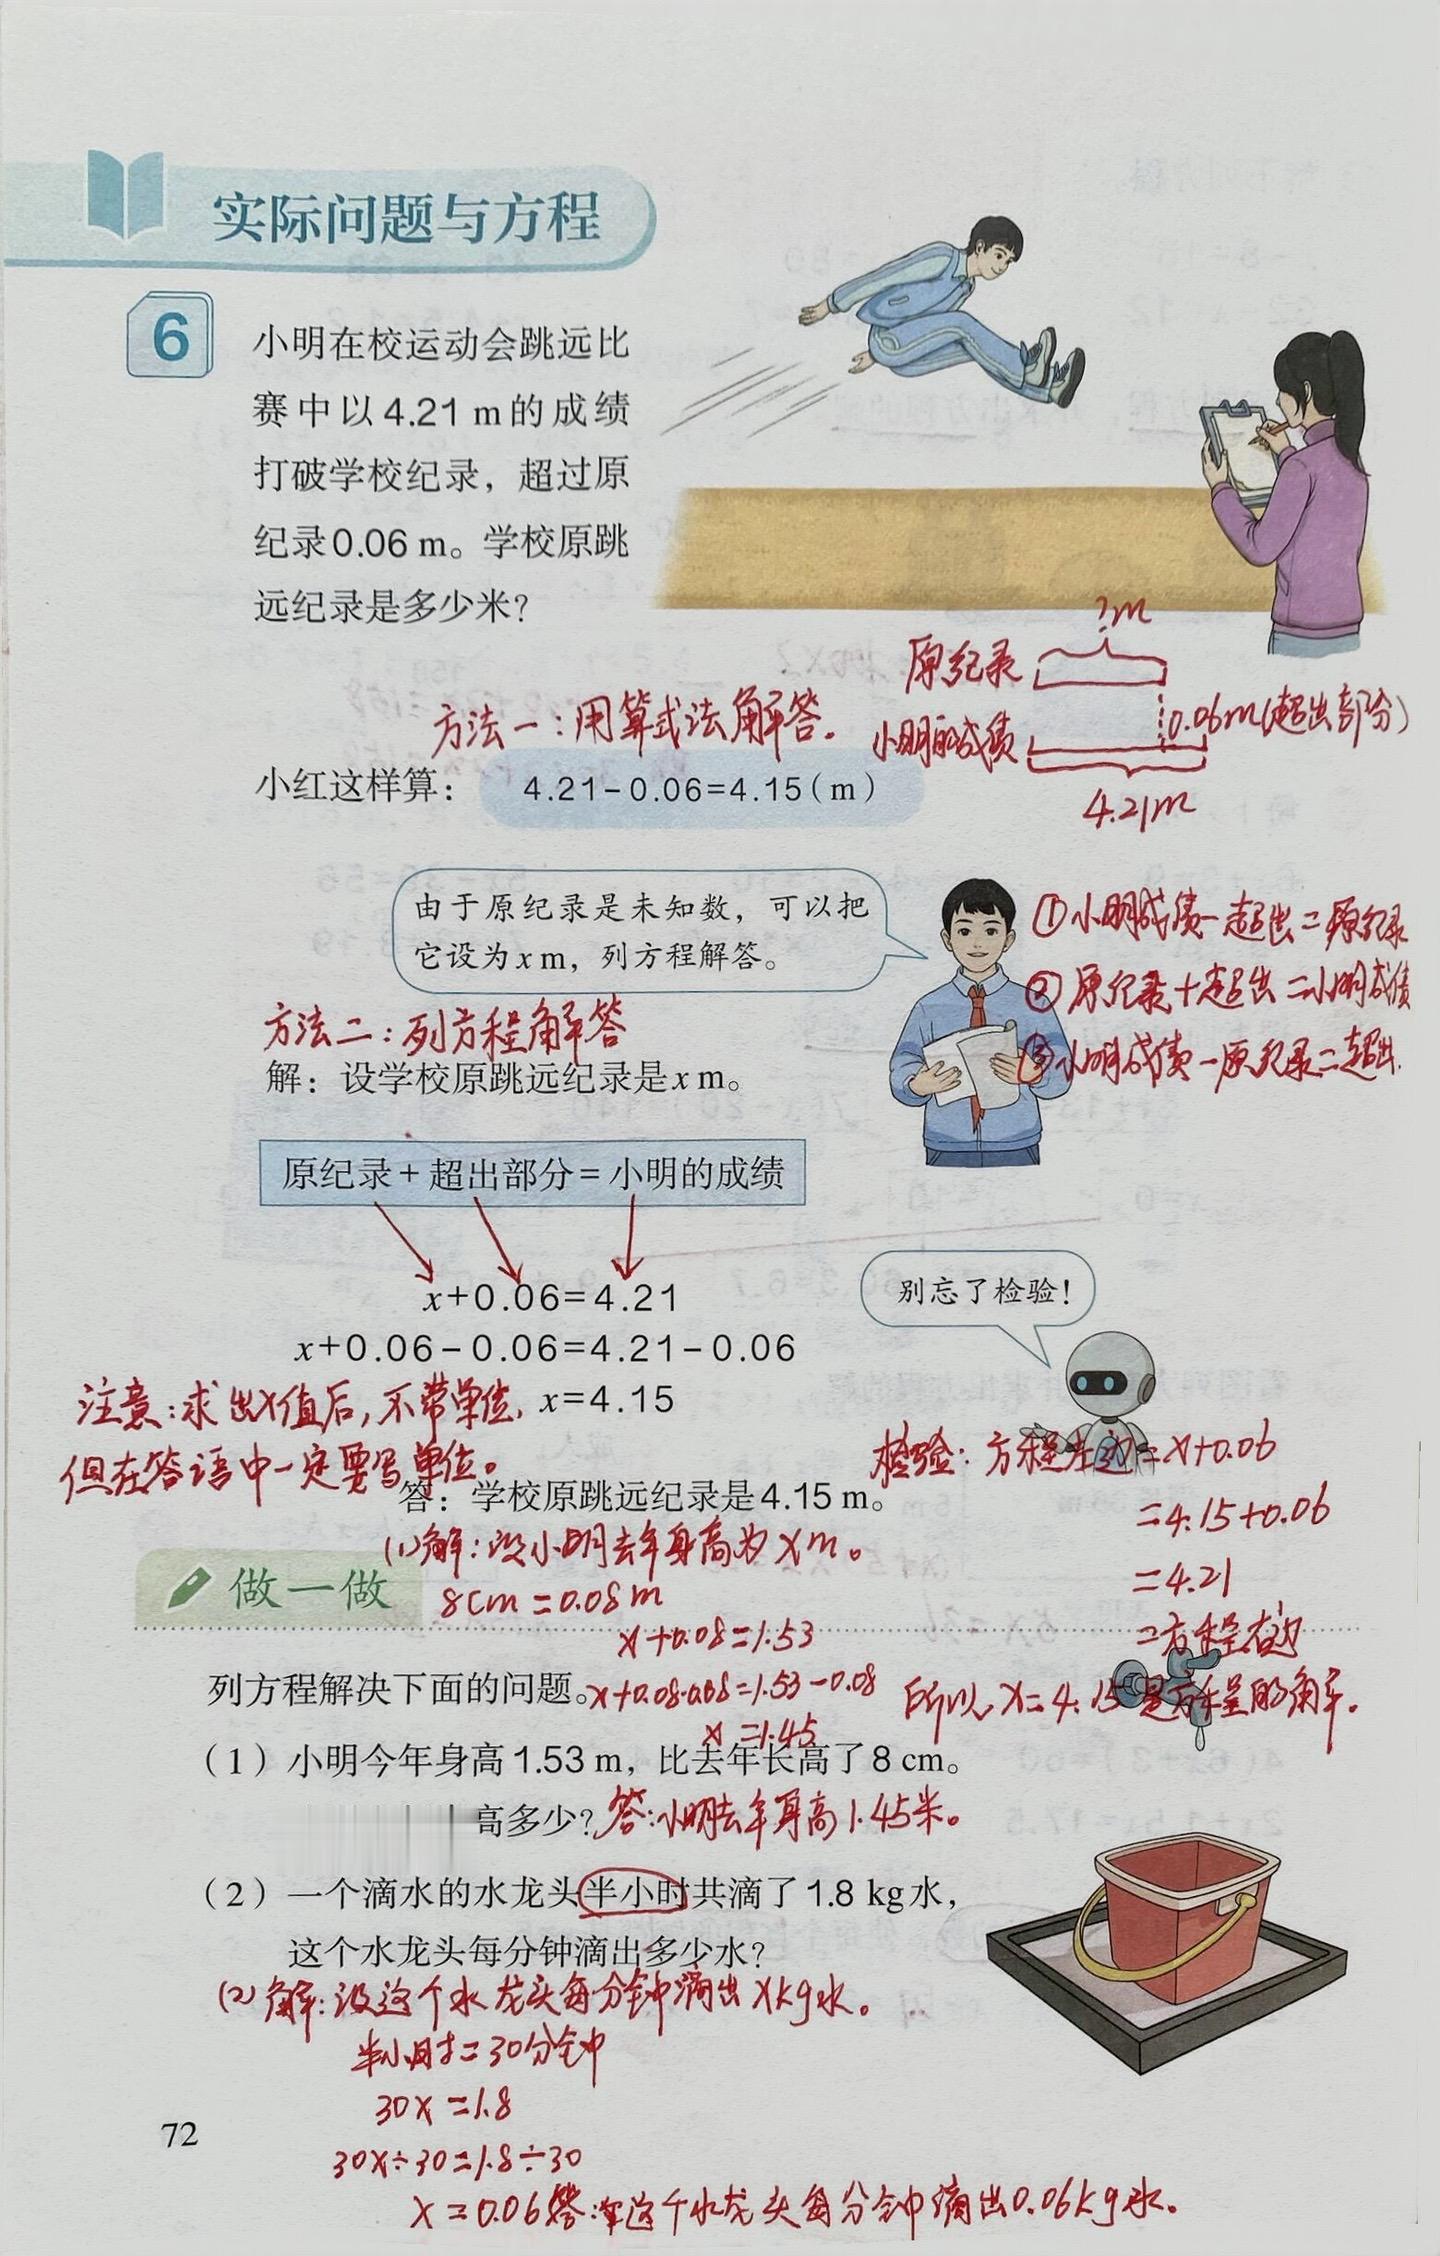 实际问题与方程
6
小明在校运动会跳远比
赛中以4.21 m的成绩
打破学校纪录，超过原
纪录0.06 m。学校原跳
远纪录是多少米？
?m
原纪录
0.06m(超出部分)
小明的成绩
4.21m
方法一：用算式法解答。
小红这样算： 4.21-0.06=4.15(m)
由于原纪录是未知数，可以把
它设为x m，列方程解答。
①小明成绩-超出=原纪录
②原纪录+超出=小明成绩
③小明成绩-原纪录=超出.
方法二：列方程解答
解：设学校原跳远纪录是x m。
原纪录+超出部分=小明的成绩
x+0.06=4.21
x+0.06-0.06=4.21-0.06
x=4.15
别忘了检验！
注意：求出x值后，不带单位，
但在答语中一定要写单位。
答：学校原跳远纪录是4.15 m。
检验：方程左边=x+0.06
=4.15+0.06
=4.21
=方程右边
所以，x=4.15是方程的解。
做一做
(1)解：设小明去年身高为xm。
8cm=0.08m
x+0.08=1.53
x+0.08-0.08=1.53-0.08
x=1.45
列方程解决下面的问题。
（1）小明今年身高1.53 m，比去年长高了8 cm。
高多少？
答：小明去年身高1.45米。
（2）一个滴水的水龙头半小时共滴了1.8 kg水，
这个水龙头每分钟滴出多少水？
(2)解：设这个水龙头每分钟滴出xkg水。
半小时=30分钟
30x=1.8
30x÷30=1.8÷30
x=0.06
答：这个水龙头每分钟滴出0.06kg水。
72